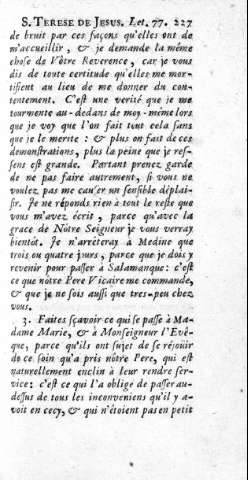 S. TERESE DE JESUS. Let. 77. 227
de bruit par ces façons qu'elles ont de
m'accueillir, & je demande la même
chose de Vôtre Reverence, car je vous
dis de toute certitude qu'elles me mor-
tifient au lieu de me donner du con-
tentement. C'est une verité que je me
tourmente au-dedans de moy-même lors
que je voy que l'on fait tout cela sans
que je le merite: & plus on fait de ces
demonstrations, plus la peine que je res-
sens est grande. Partant prenez garde
de ne pas faire autrement, si vous ne
voulez pas me causer un sensible déplai-
sir. Je ne répond rien à tout le reste que
vous m'avez écrit, parce qu'avec la
grace de Nôtre Seigneur je vous verray
bientôt. Je n'arrêteray à Medine que
trois ou quatre jours, parce que je dois y
revenir pour passer à Salamanque: c'est
ce que nôtre Pere Vicaire me commande,
& que je ne sois aussi que tres-peu chez
vous.
3. Faites sçavoir ce qui se passe à Ma-
dame Marie, & à Monseigneur l'Evê-
que, parce qu'ils ont sujet de se réjouir
de ce soin qu'a pris nôtre Pere, qui est
naturellement enclin à leur rendre ser-
vice: c'est ce qui l'a obligé de passer au-
dessus de tous les inconveniens qu'il y a-
voit en cecy, & qui n'étoient pas en petit